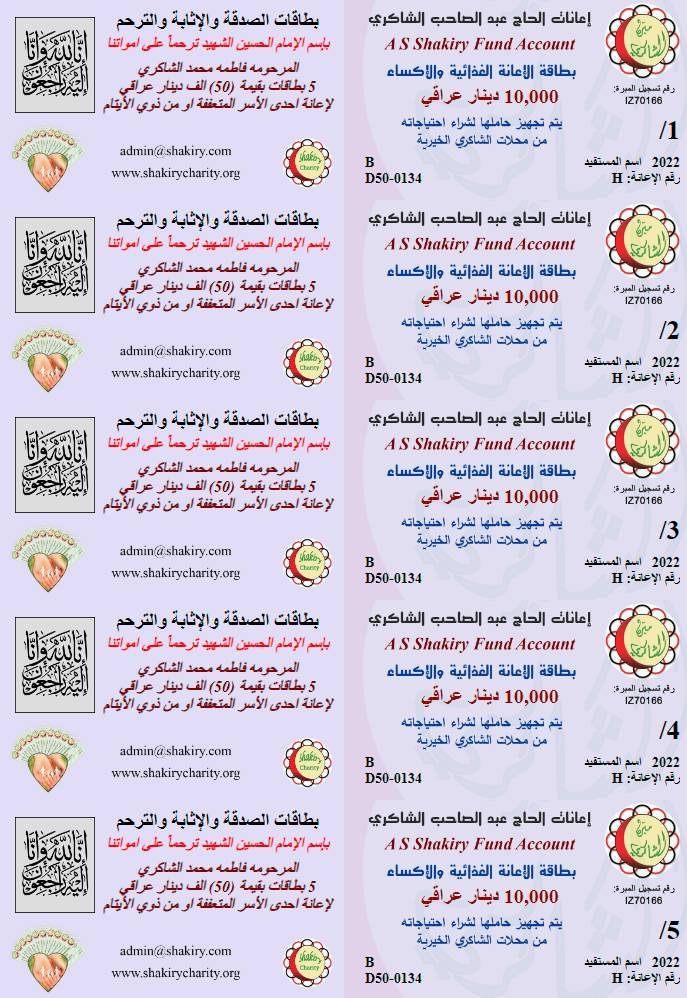 بطاقات الصدقة والإثابة والترحم
بإسم الإمام الحسين الشهيد ترحماً على امواتنا
المرحومه فاطمه محمد الشاكري
5 بطاقات بقيمة (50) الف دينار عراقي
لإعانة احدى الأسر المتعففة او من ذوي الأيتام
إنا لله وإنا إليه راجعون
admin@shakiry.com
www.shakirycharity.org
Shakiry
Charity
إعانات الحاج عبد الصاحب الشاكري
A S Shakiry Fund Account
بطاقة الأعانة الغذائية والأكساء
10,000 دينار عراقي
يتم تجهيز حاملها لشراء احتياجاته
من محلات الشاكري الخيرية
مبرة
الشاكري
رقم تسجيل المبرة:
IZ70166
/1
2022 اسم المستفيد B
رقم الإعانة: H D50-0134
بطاقات الصدقة والإثابة والترحم
بإسم الإمام الحسين الشهيد ترحماً على امواتنا
المرحومه فاطمه محمد الشاكري
5 بطاقات بقيمة (50) الف دينار عراقي
لإعانة احدى الأسر المتعففة او من ذوي الأيتام
إنا لله وإنا إليه راجعون
admin@shakiry.com
www.shakirycharity.org
Shakiry
Charity
إعانات الحاج عبد الصاحب الشاكري
A S Shakiry Fund Account
بطاقة الأعانة الغذائية والأكساء
10,000 دينار عراقي
يتم تجهيز حاملها لشراء احتياجاته
من محلات الشاكري الخيرية
مبرة
الشاكري
رقم تسجيل المبرة:
IZ70166
/2
2022 اسم المستفيد B
رقم الإعانة: H D50-0134
بطاقات الصدقة والإثابة والترحم
بإسم الإمام الحسين الشهيد ترحماً على امواتنا
المرحومه فاطمه محمد الشاكري
5 بطاقات بقيمة (50) الف دينار عراقي
لإعانة احدى الأسر المتعففة او من ذوي الأيتام
إنا لله وإنا إليه راجعون
admin@shakiry.com
www.shakirycharity.org
Shakiry
Charity
إعانات الحاج عبد الصاحب الشاكري
A S Shakiry Fund Account
بطاقة الأعانة الغذائية والأكساء
10,000 دينار عراقي
يتم تجهيز حاملها لشراء احتياجاته
من محلات الشاكري الخيرية
مبرة
الشاكري
رقم تسجيل المبرة:
IZ70166
/3
2022 اسم المستفيد B
رقم الإعانة: H D50-0134
بطاقات الصدقة والإثابة والترحم
بإسم الإمام الحسين الشهيد ترحماً على امواتنا
المرحومه فاطمه محمد الشاكري
5 بطاقات بقيمة (50) الف دينار عراقي
لإعانة احدى الأسر المتعففة او من ذوي الأيتام
إنا لله وإنا إليه راجعون
admin@shakiry.com
www.shakirycharity.org
Shakiry
Charity
إعانات الحاج عبد الصاحب الشاكري
A S Shakiry Fund Account
بطاقة الأعانة الغذائية والأكساء
10,000 دينار عراقي
يتم تجهيز حاملها لشراء احتياجاته
من محلات الشاكري الخيرية
مبرة
الشاكري
رقم تسجيل المبرة:
IZ70166
/4
2022 اسم المستفيد B
رقم الإعانة: H D50-0134
بطاقات الصدقة والإثابة والترحم
بإسم الإمام الحسين الشهيد ترحماً على امواتنا
المرحومه فاطمه محمد الشاكري
5 بطاقات بقيمة (50) الف دينار عراقي
لإعانة احدى الأسر المتعففة او من ذوي الأيتام
إنا لله وإنا إليه راجعون
admin@shakiry.com
www.shakirycharity.org
Shakiry
Charity
إعانات الحاج عبد الصاحب الشاكري
A S Shakiry Fund Account
بطاقة الأعانة الغذائية والأكساء
10,000 دينار عراقي
يتم تجهيز حاملها لشراء احتياجاته
من محلات الشاكري الخيرية
مبرة
الشاكري
رقم تسجيل المبرة:
IZ70166
/5
2022 اسم المستفيد B
رقم الإعانة: H D50-0134